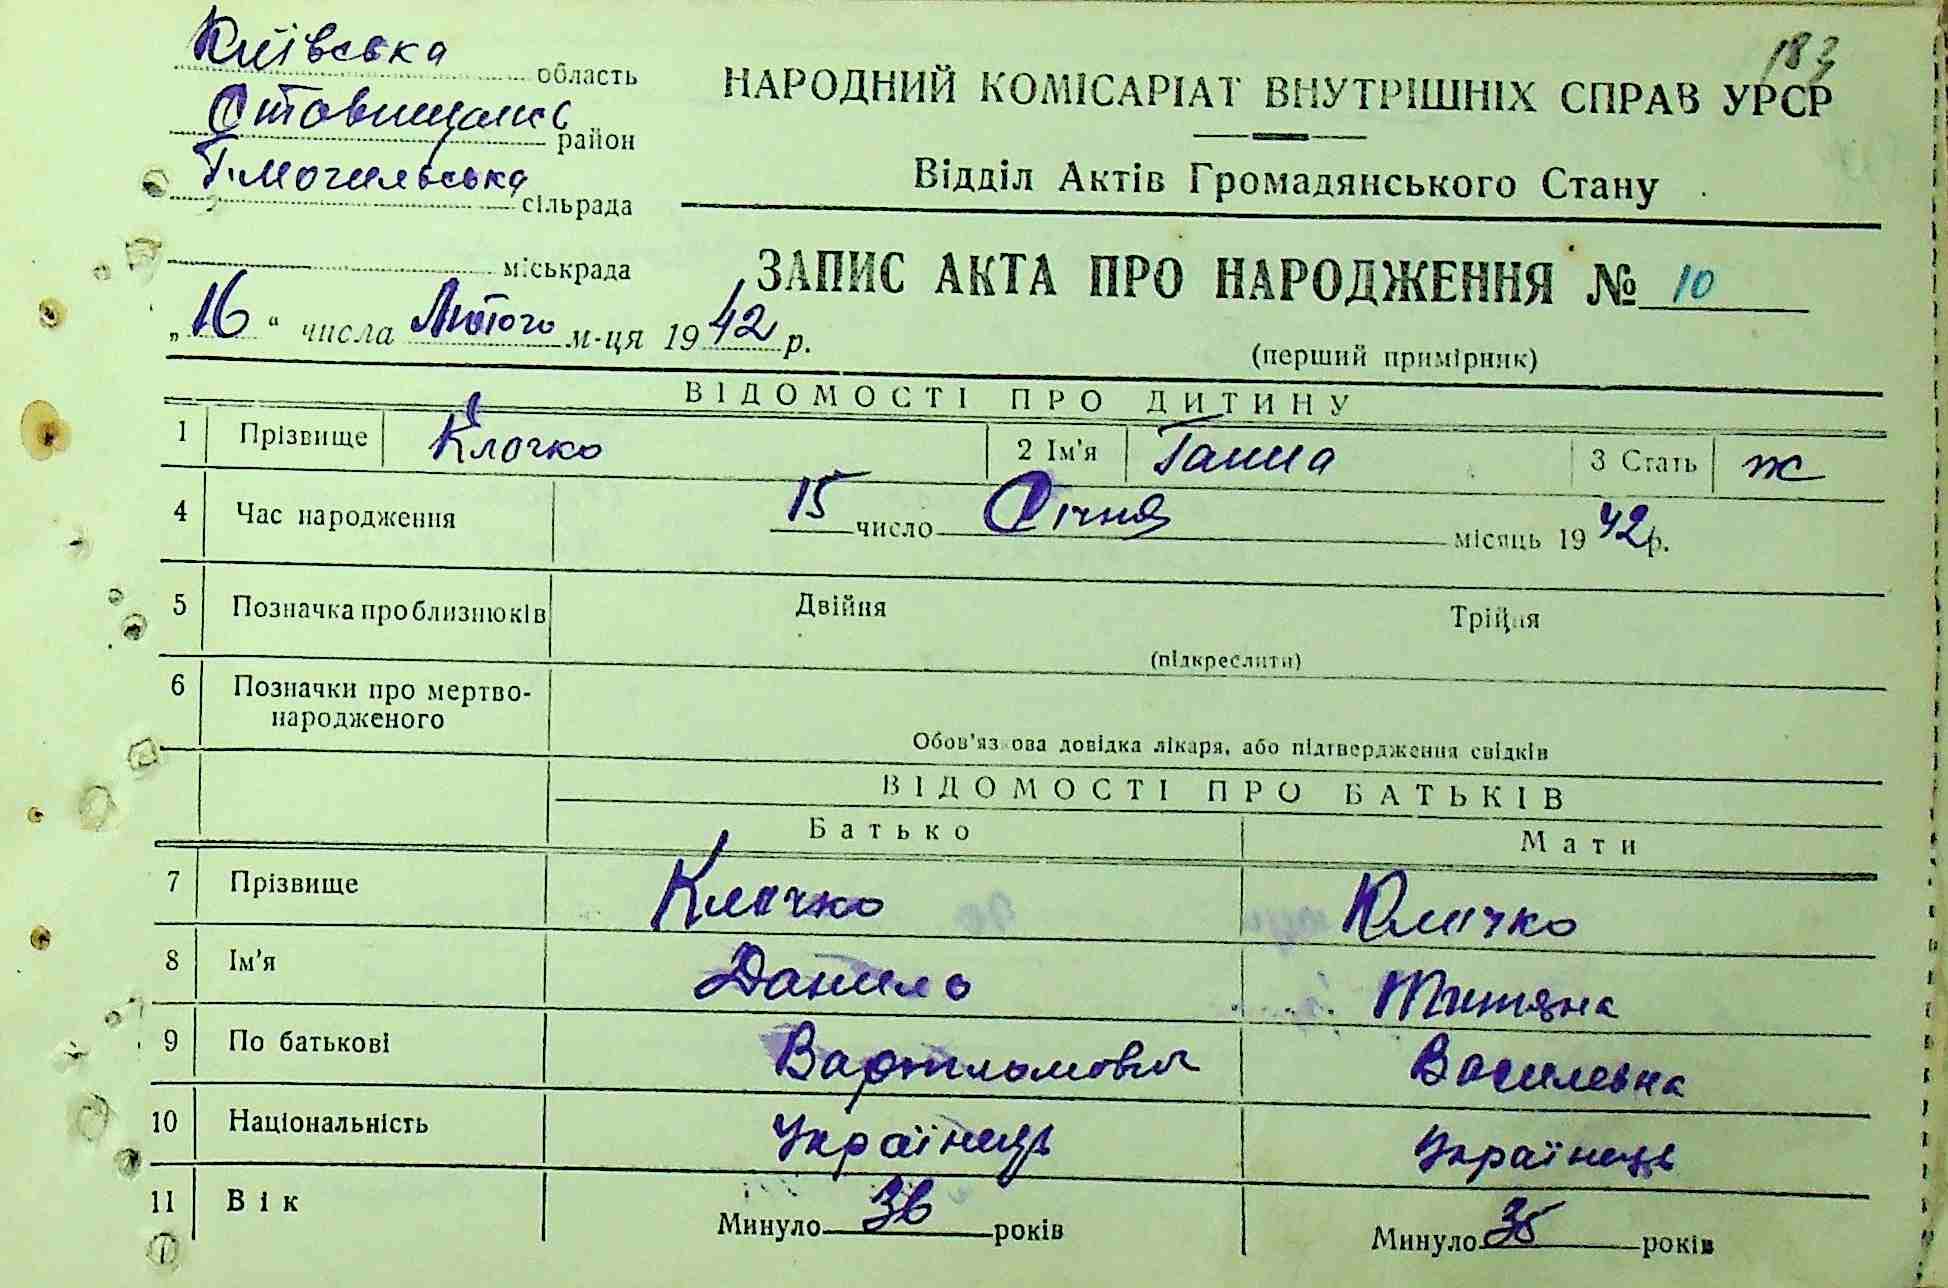 183
Київська область
Ставищанс район
Г.могильська сільрада
міськрада
НАРОДНИЙ КОМІСАРІАТ ВНУТРІШНІХ СПРАВ УРСР
Відділ Актів Громадянського Стану
ЗАПИС АКТА ПРО НАРОДЖЕННЯ № 10
„16“ числа Лютого м-ця 1942 р.
(перший примірник)
ВІДОМОСТІ ПРО ДИТИНУ
1 Прізвище Клочко 2 Ім'я Ганна 3 Стать ж
4 Час народження 15 число Січня місяць 1942 р.
5 Позначка про близнюків Двійня Трійня
(підкреслити)
6 Позначки про мертво-
народженого
Обов'язкова довідка лікаря, або підтвердження свідків
ВІДОМОСТІ ПРО БАТЬКІВ
Батько Мати
7 Прізвище Клочко Клочко
8 Ім'я Данило Титяна
9 По батькові Вартломович Василевна
10 Національність Українець Українець
11 Вік Минуло 36 років Минуло 35 років